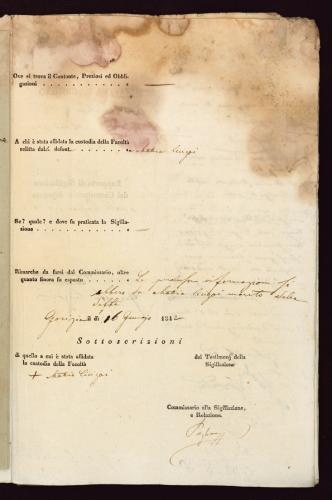 Ove si trova il Contante, Preziosi ed Obbli-
gazioni . . . . . . . . . . . . . . —
A chi è stata affidata la custodia della Facoltà
relitta dal defont. . . . . . . . . . Maria
Se? quale? e dove fu praticata la Sigilla-
zione . . . . . . . . . . . . . . —
Rimarche da farsi dal Commissario, oltre
quanto finora fu esposto . . . . . . Le informazioni si
da Maria marito della
Gorizia li 16 1842
Sottoscrizioni
di quello a cui è stata affidata
la custodia della Facoltà
dei Testimonj della
Sigillazione
+ Maria
Commissario alla Sigillazione,
e Relazione.